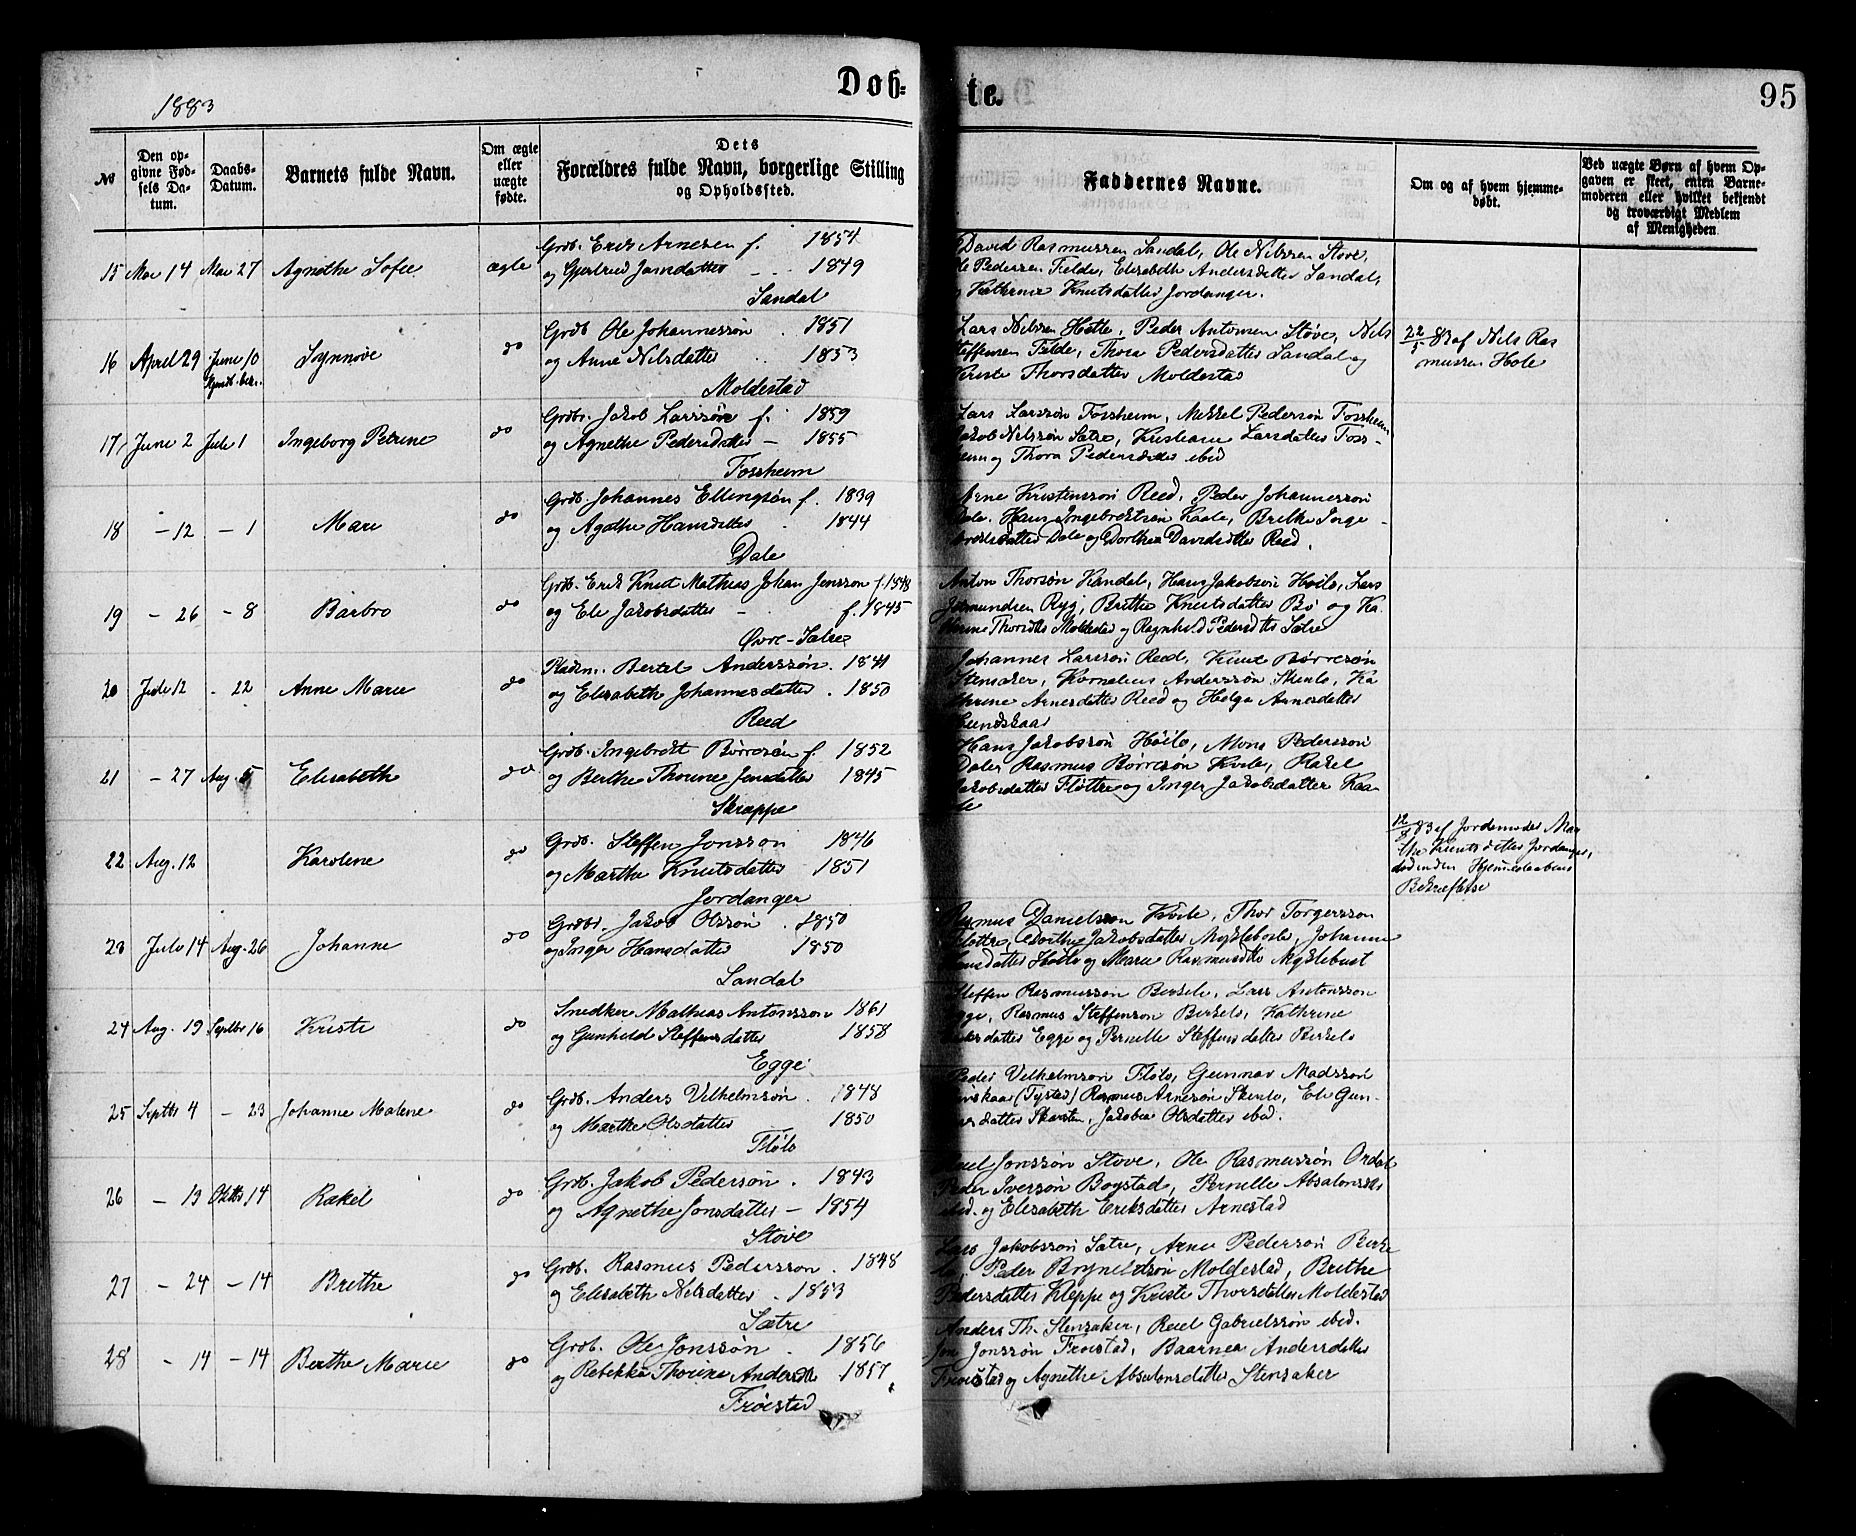 1883
Døb-
te.
95
No
Den op-
givne Fød-
sels Da-
tum.
Daabs-
Datum.
Barnets fulde Navn.
Om ægte
eller
uægte
fødte.
Dets
Forældres fulde Navn, borgerlige Stilling
og Opholdssted.
Faddernes Navne.
Om og af hvem hjemme-
døbt.
Ved uægte Børn af hvem Op-
gaven er skeet, enten Barne-
moderen eller hvilket bekjendt
og troværdigt Medlem
af Menigheden.
15 Mai 14 Mai 27 Agnethe Sofie ægte
Grdb. Erik Arnesen f. 1854
og Gjertrud Jonsdatter 1849
Sandal
David Rasmussen Sandal, Ole Nilssen Støve,
Pedersen Felde, Elisabeth Andersdatter Sandal,
Kathrine Knutsdatter Jordanger.
16 April 29 Juni 10 Synnøve do
Grdb Ole Johannessøn 1851
og Anne Nilsdatter 1853
Moldestad
Lars Nilssen Hotle, Peder Antonsen Støve, Nils
Steffensen Felde, Thora Pedersdatter Sandal og
Kristi Thorsdatter Moldestad
22/5 83 af Nils Ras
mussen Hole
17 Juni 2 Juli 1 Ingeborg Petrine do
Grdbr. Jakob Larssøn f. 1859
og Agnethe Pedersdatter - 1855
Fossheim
Lars Larssøn Fossheim, Mikkel Pedersøn Fossheim
Jakob Nilssøn Sætre, Kristiane Larsdatter Foss-
heim og Thora Pedersdatter ibid
18 - 12 - 1 Mari do
Grdb. Johannes Ellingsøn f. 1839
og Agathe Hansdatter 1844
Dale
Arne Kristenssøn Reed, Peder Johannessøn
Dale. Hans Ingebrektsøn Kaale, Brithe Inge-
brektsdatter Dale og Dorthea Davidsdatter Reed.
19 - 26 - 8 Barbro do
Grdb. Erik Knut Mathias Johan Jonsson f. 1848
og Eli Jakobsdatter - f. 1845
Øvre-Sætre
Anton Thorsøn Kandal, Hans Jakobsøn Høilo, Lars
Gudmundsen Ryg, Brithe Knutsdatter Bø og Ka-
thrine Thorsdtr Moldestad og Ragnhild Pedersdtr Sætre
20 Juli 12 - 22 Anne Marie do
Pladsm. Bertel Anderssøn. 1841
og Elisabeth Johannesdatter. 1850
Reed
Johannes Larssøn Reed, Knut Børresøn
Stensaker, Kornelius Anderssøn Skinlo, Ka
thrine Arnesdatter Reed og Helga Arnesdatter
Lundskaar
21 - 27 Aug. 5 Elisabeth do
Grdb. Ingebrekt Børresøn f. 1852
og Berthe Thorine Jonsdatter 1845
Skrappe
Hans Jakobssøn Høilo, Mons Pederssøn
Dale, Rasmus Børresøn Kvile, Rakel
Jakobsdatter Fløttre og Inger Jakobsdatter Kaa-
le
22 Aug. 12 Karoline do
Grdb. Steffen Jonsson 1846
og Marthe Knutsdatter 1851
Jordanger
12/8 83 af Jordemoder Mar
the Knutsdatter Jordanger,
død inden Hjemmedaabens
Bekræftelse
23 Juli 14 Aug. 26 Johanne do
Grdbr. Jakob Olssøn. 1850
og Inger Hansdatter 1850
Sandal
Rasmus Danielsson Kvile, Thor Torgersson
Fløttre, Dorthe Jakobsdatter Myklebost, Johanne
Hansdatter Høilo og Marie Rasmusdtr Myklebust
24 Aug. 19 Septbr 16 Kristi do
Snedker Mathias Antonsson 1861
og Gunhild Steffensdatter 1858
Egge
Steffen Rasmusson Birkelo, Lars Antonsson
Egge, Rasmus Steffenson Birkelo, Kathrine
datter Egge og Pernille Steffensdatter Birkelo
25 Septbr 4 - 23 Johanne Malene do
Grdb. Anders Vilhelmsøn. 1848
og Marthe Olsdatter 1850
Flølo
Peder Vilhelmsøn Flølo, Gunnar Madssøn
(Tystad) Rasmus Arnesøn Skinlo, Eli Gun-
narsdatter Skarsten, Jakobea Olsdatter ibid.
26 - 19 Oktbr 14 Rakel do
Grdb. Jakob Pedersøn. 1843
og Agnethe Jonsdatter - 1854
Støve
Jonssøn Støve, Ole Rasmussøn Ordal
Peder Iverssøn Bogstad, Pernille Absalonsdtr
ibid. og Elisabeth Eriksdatter Arnestad
27 - 24 - 14 Brithe do
Grdb. Rasmus Pedersson. 1848
og Elisabeth Nilsdatter. 1853
Sætre
Lars Jakobssøn Sætre, Arne Pedersøn Birke
lo. Peder Brynildsøn Moldestad, Brithe
Pedersdatter Kleppe og Kristi Thorsdatter Moldestad
28 - 14 - 14 Berthe Marie do
Grdb. Ole Jonssøn. 1856
og Rebekka Thorine Andersdtr 1857
Frøistad
Anders Th. Stensaker, Reiel Gabrielssøn ibid.
Jon Jonssøn Frøistad, Baarnea Andersdatter
Frøistad og Agnethe Absalonsdatter Stensaker